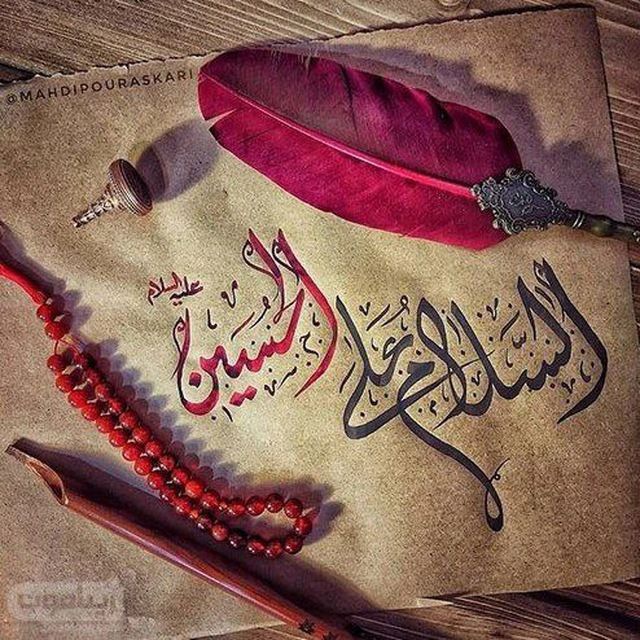 @MAHDIPOURASKARI
السَّلام عَلَی الحُسین
علیه السلام